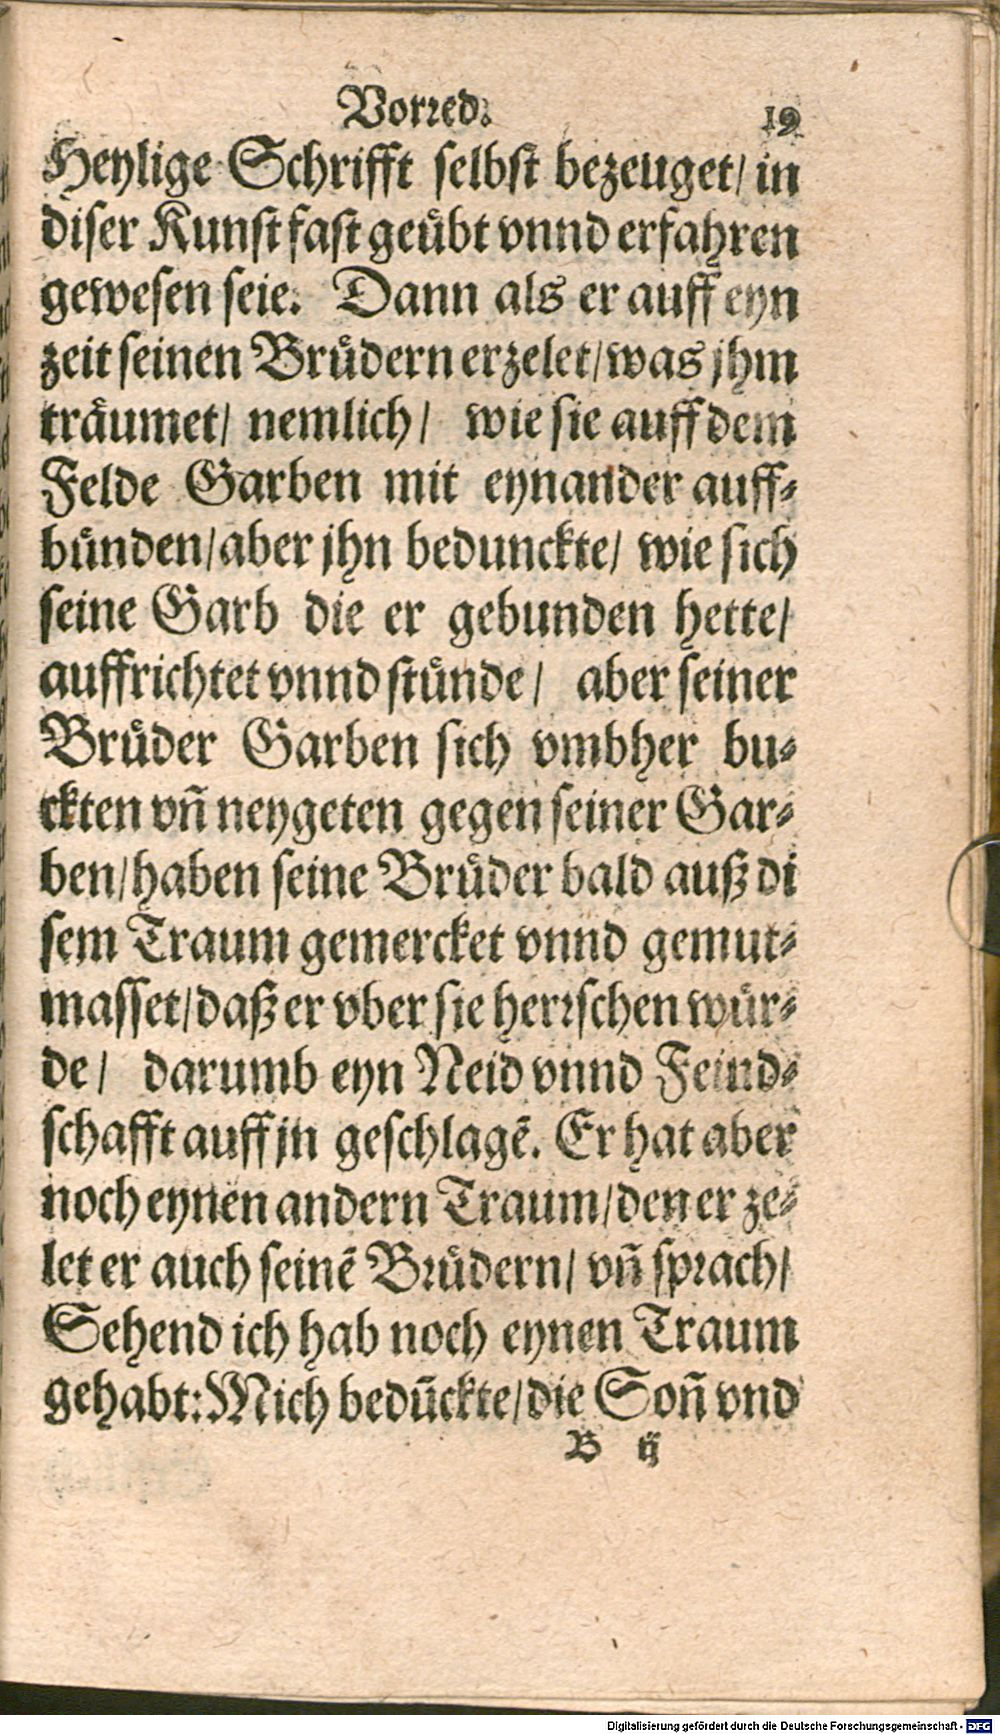 Vorꝛed. 19
Heylige Schrifft selbst bezeuget/ in
diser Kunst fast geuͤbt vnnd erfahren
gewesen seie. Dann als er auff eyn
zeit seinen Bruͤdern erzelet/ was jhm
traͤumet/ nemlich/ wie sie auff dem
Felde Garben mit eynander auff⸗
buͤnden/ aber jhn bedunckte/ wie sich
seine Garb die er gebunden hette/
auffrichtet vnnd stuͤnde/ aber seiner
Bruͤder Garben sich vmbher bu⸗
ckten vñ neygeten gegen seiner Gar⸗
ben/ haben seine Bruͤder bald auß di
sem Traum gemercket vnnd gemut⸗
masset/ daß er vber sie herꝛschen wuͤr⸗
de/ darumb eyn Neid vnnd Feind⸗
schafft auff jn geschlagẽ. Er hat aber
noch eynen andern Traum/ den er ze⸗
let er auch seinẽ Bꝛuͤdern/ vñ spꝛach/
Sehend ich hab noch eynen Traum
gehabt: Mich bedũckte/ die Soñ vnd
B ij
Digitalisierung gefördert durch die Deutsche Forschungsgemeinschaft - DFG